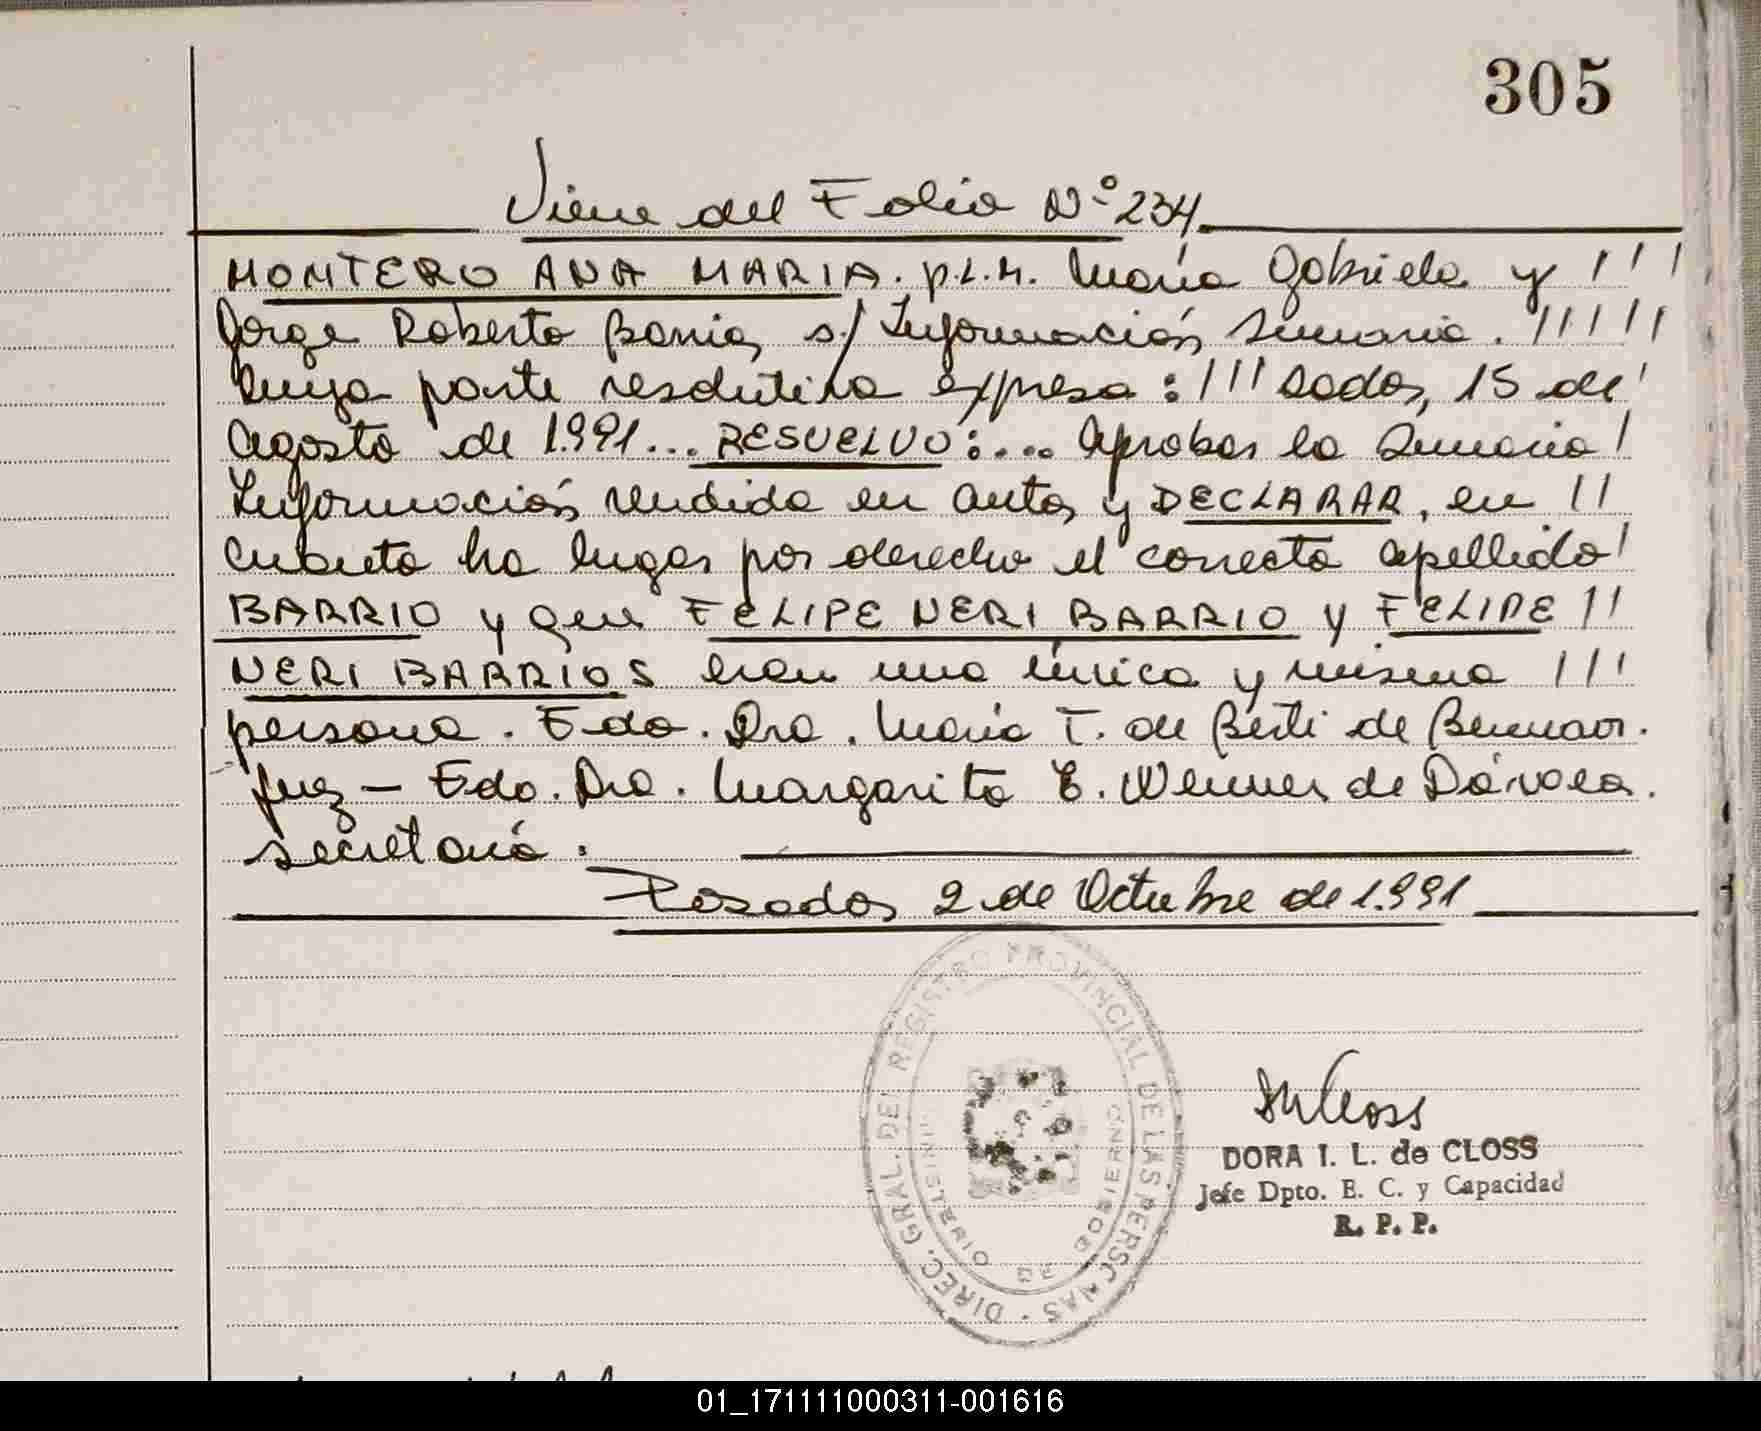 305
Viene del Folio Nº 234
MONTERO ANA MARIA. p.L.M. María Gabriela y !!!
Jorge Roberto Barrios s/ Información Sumaria. !!!!!
Cuya parte resolutiva expresa: !!! Sadas, 15 de!
Agosto de 1.991... RESUELVO:.... Aprobar la Sumaria!
Información rendida en autos y DECLARAR, en !!
Cuanto ha lugar por derecho el correcto apellido!
BARRIO y que FELIPE NERI BARRIO y FELIPE !!
NERI BARRIOS eran una única y misma !!!
persona. Fdo. Dra. María T. de Berti de
Juez - Fdo. Dra. Margarita E. de Dávalos.
secretaria.
Posadas 2 de Octubre de 1.991
DIREC. GRAL. DEL REGISTRO PROVINCIAL DE LAS PERSONAS
MINISTERIO DE GOBIERNO
DORA I. L. de CLOSS
Jefe Dpto. E. C. y Capacidad
R. P. P.
01_171111000311-001616